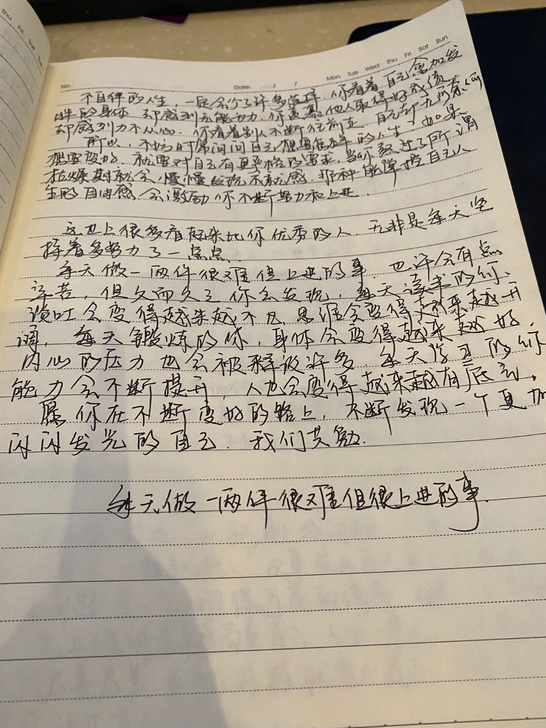 Thu Fri Sat Sun
No.
Date: / /
Mon Tue Wed Thu Fri Sat Sun
不自律的人生,一定会少了许多选择,你看着自己愈加发
胖的身体,却感到无能为力,你羡慕他人取得好成绩,
却感到力不从心,你看着别人不断往前走,自己
所以,不妨时常问问自己想要怎样的人生,如果
想要变好,就要对自己有更严格的要求,当你熬过了所谓
煎熬期就会慢慢给你成就感,那种能掌控自己人
生的自由感会激励你不断努力和上进。
这世上很多看起来比你优秀的人,无非是每天坚
持着多努力了一点点
每天做一两件很难但上进的事,也许会有点
辛苦,但久而久之你会发现,每天读书的你,
谈吐会变得越来越不凡,思维会变得越来越开
阔,每天锻炼的你,身体会变得越来越好
内心的压力也会被释放许多,每天学习的你
能力会不断提升,人也会变得越来越有底气,
愿你在不断变好的路上,不断发现一个更加
闪闪发光的自己,我们共勉.
每天做一两件很难但很上进的事.